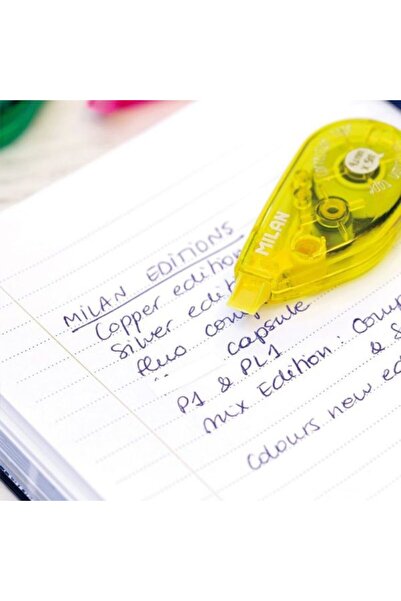 MILAN EDITIONS
Copper edition
Silver edit
fluo comp
" capsule
P1 & PL1
MIX Edition: Comp
& S
Colours new ed
MILAN